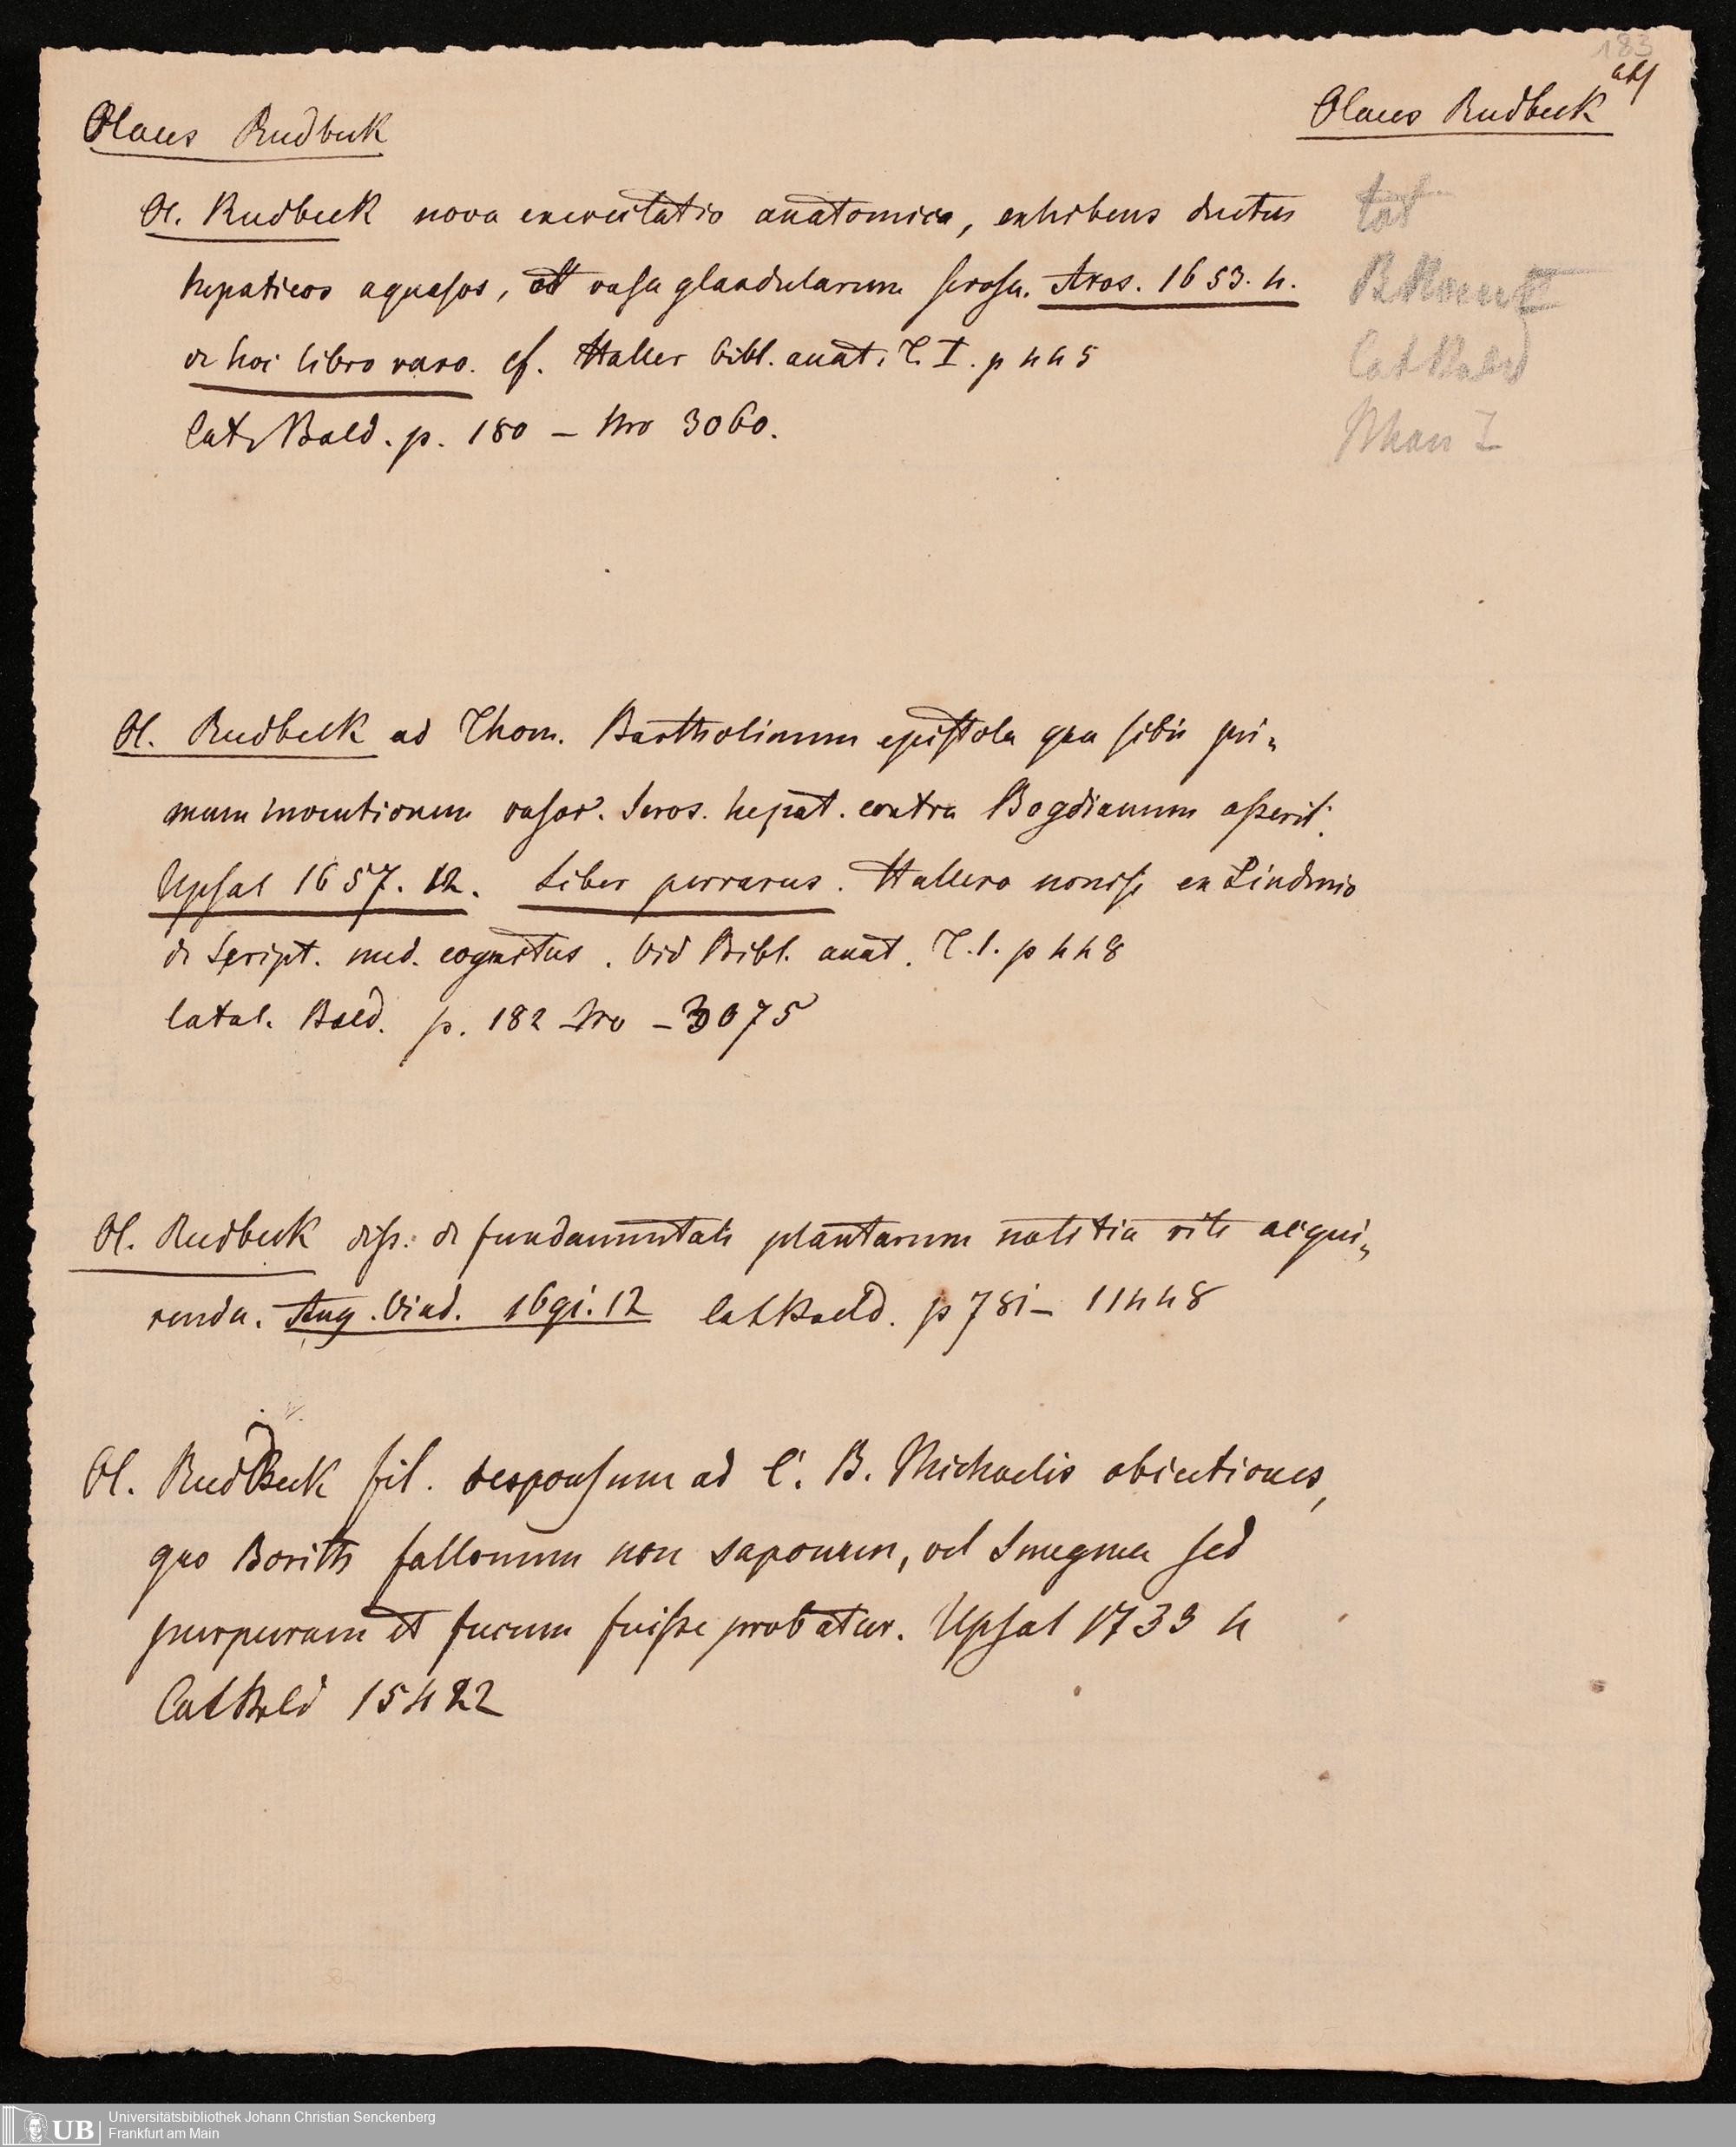 183
Olaus Rudbeck
Olaus Rudbeck
Ol. Rudbeck nova exercitatio anatomica, exhibens ductus
hepaticos aquosos, et vasa glandularum serosa. Aros. 1653. 4.
de hoc libro raro. cf. Haller bibl. anat. T. I. p 445
Cat. Bald. p. 180 – Nro 3060.
tot
Cat Bald
Ol. Rudbeck ad Thom. Bartholinum epistola qua sibi pri-
mam inventionem vasor. seros. hepat. contra Bogdianum asserit.
Upsal 1657. 12. Liber perrarus. Hallero nonnisi ex Lindenio
de Script. med. cognitus. Vid Bibl. anat. T. 1. p 448
Catal. Bald. p. 182 Nro – 3075
Ol. Rudbeck diss: de fundamentali plantarum notitia rite acqui-
renda. Aug. Vind. 1691. 12 Cat Bald. p 781 – 11448
Ol. Rudbeck fil. responsum ad C. B. Michaelis obiectiones,
quo Borith fullonum non saponem, vel Smegma sed
purpuram et fucum fuisse probatur. Upsal 1733 4
Cat Bald 15422
UB Universitätsbibliothek Johann Christian Senckenberg
Frankfurt am Main